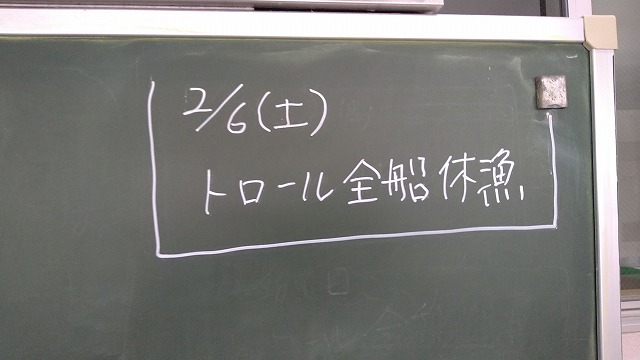 2/6(土)
トロール全船休漁